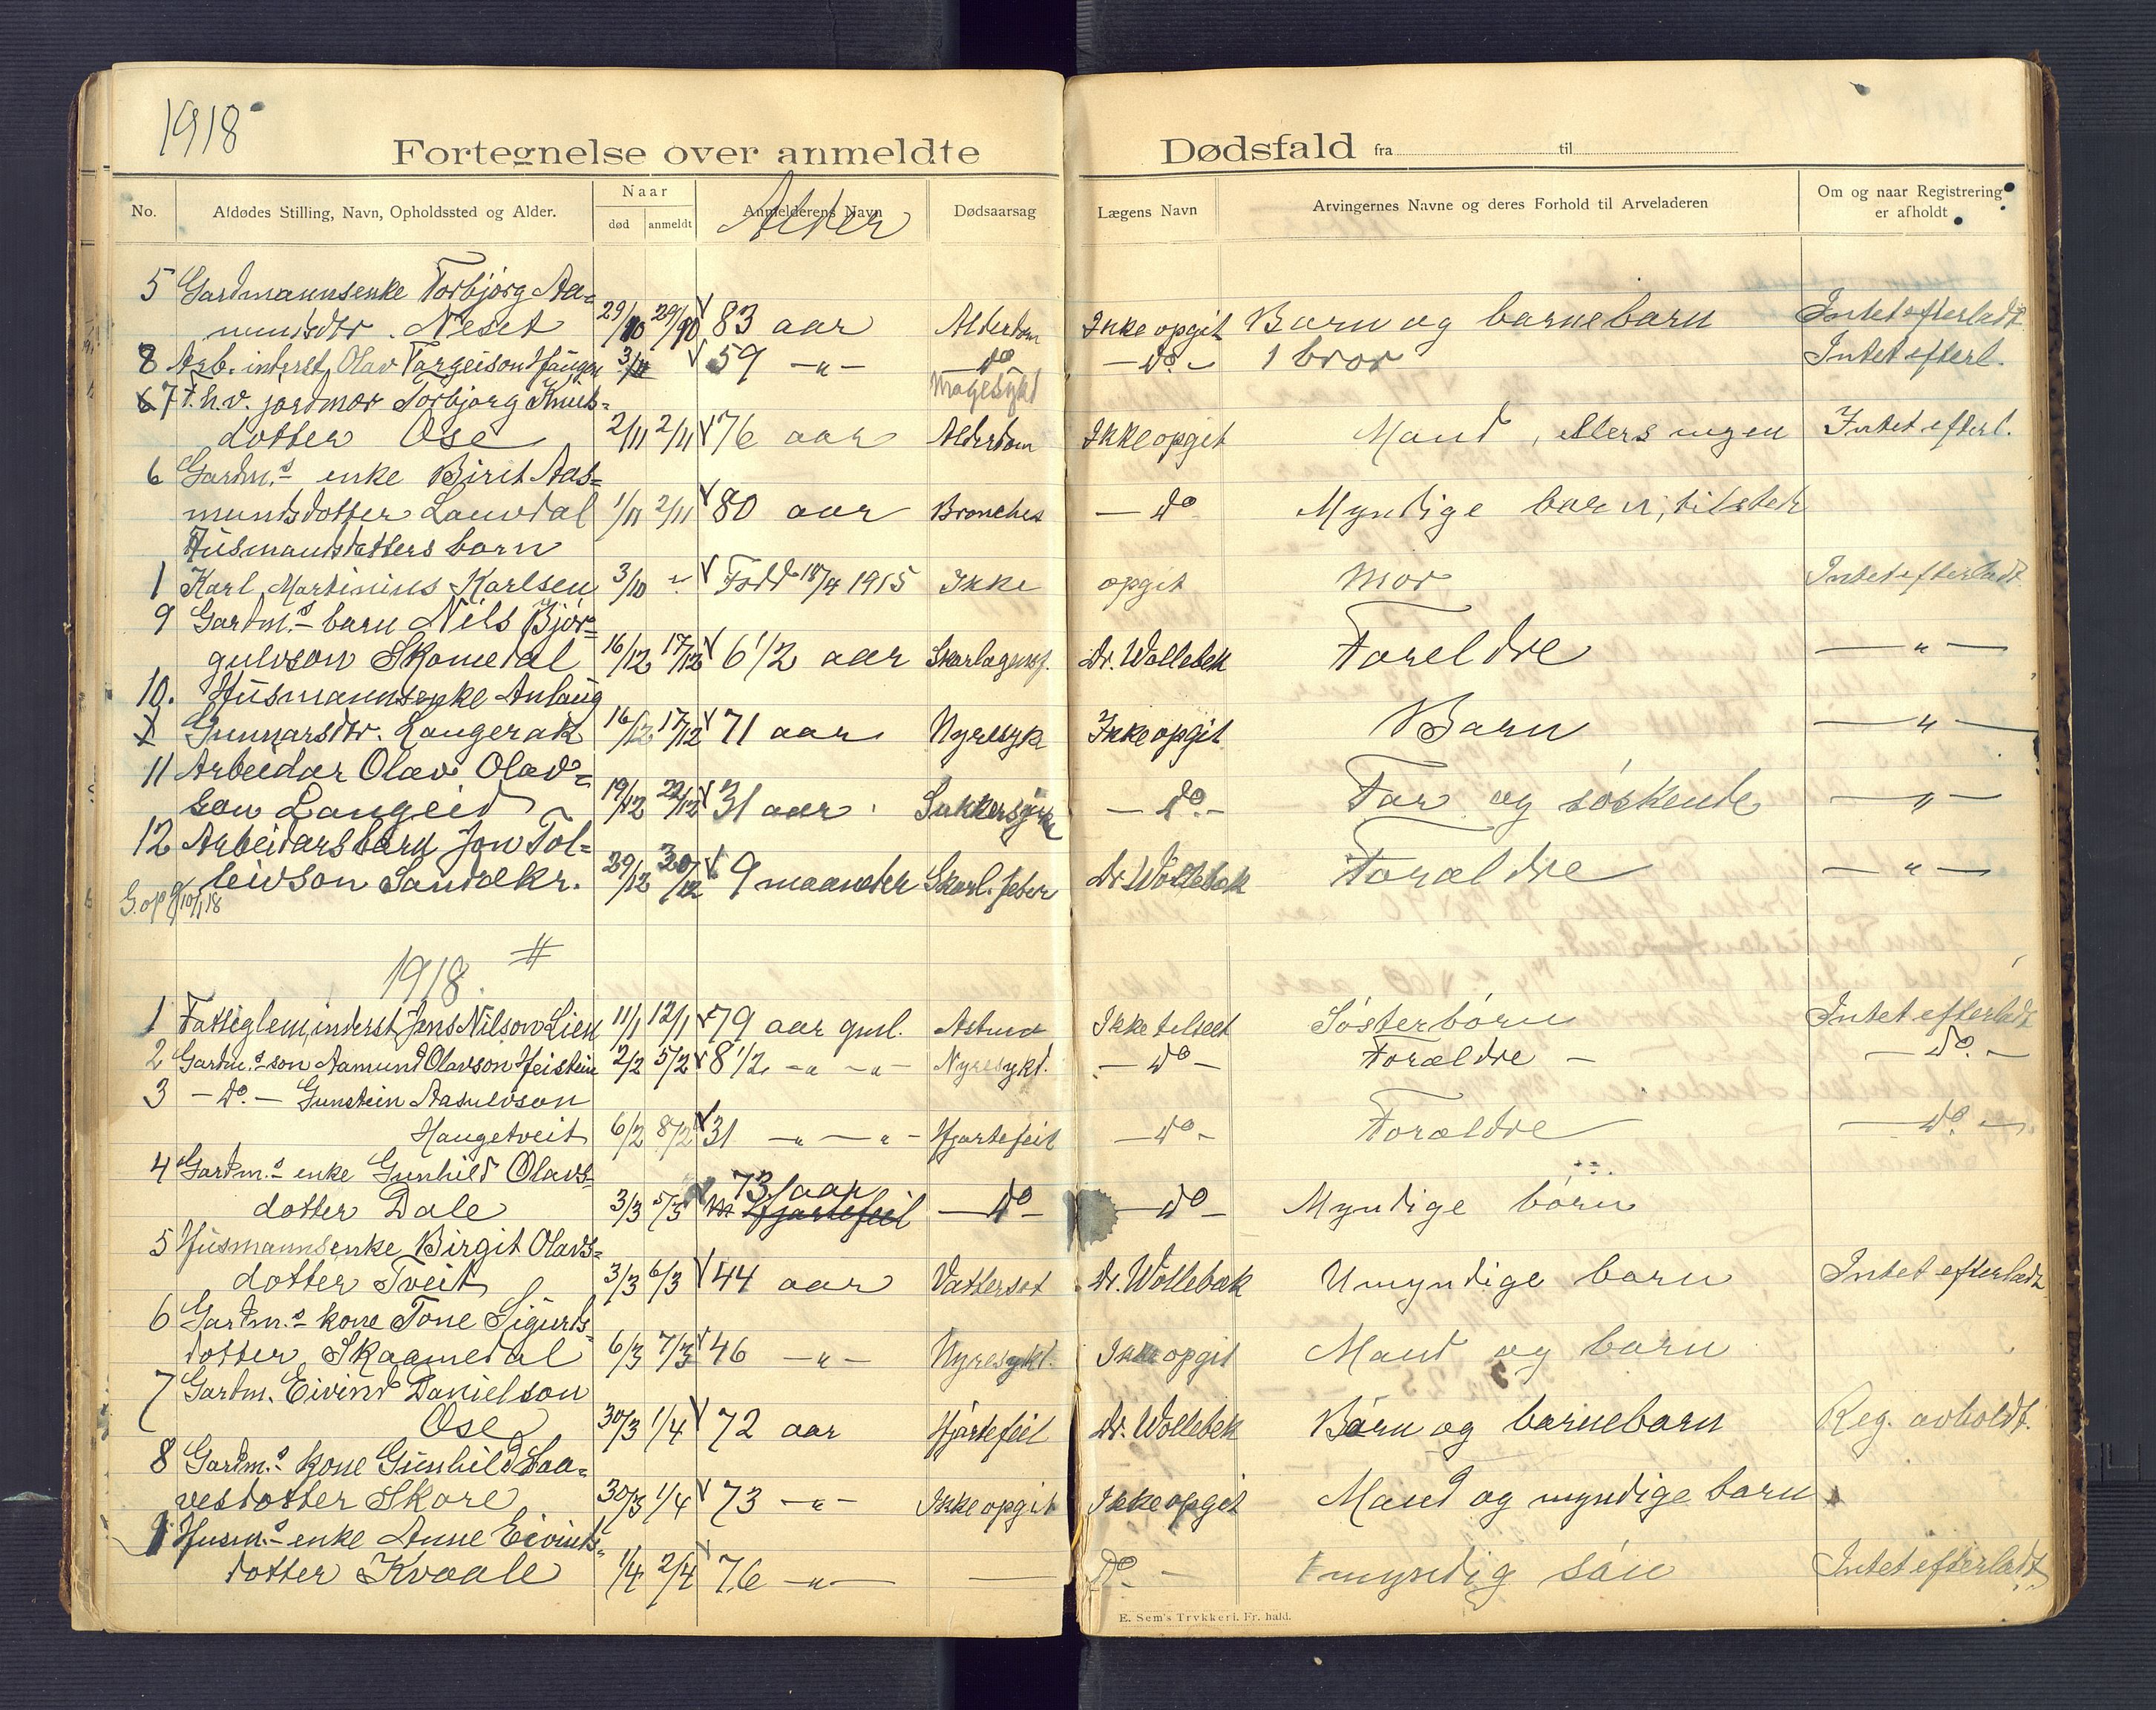 1918
Fortegnelse over anmeldte Dødsfald fra til
No. Afdødes Stilling, Navn, Opholdssted og Alder. Naar død anmeldt Anmelderens Navn Alder Dødsaarsag Lægens Navn Arvingernes Navne og deres Forhold til Arveladeren Om og naar Registrering er afholdt
5 Gardmannsenke Torbjørg Aa=
mundsdtr. Neset 29/10 29/10 83 aar Alderdom Ikke opgit Barn og barnebarn Intet efterladt
8 Arb. inderst Olav Targeison 3/11 59 -"- do -do- 1 bror Intet efterl.
Magesykd
7 f.h.v. jordmor Torbjørg Knuts=
dotter Ose 2/11 2/11 76 aar Alderdom Ikke opgit Mand, ellers ingen Intet efterl.
6 Gardm.s enke Birit Aas=
mundsdotter Lauvdal 1/11 2/11 80 aar Bronches - do Myndige barn, tilstek
Husmannsdatters barn
1 Karl Martinius Karlsen 3/10 - Født 18/4 1915 Ikke opgit Mor Intet efterladt
9 Gardm.s barn Nils Bjør=
gulvson Skomedal 16/12 17/12 6 1/2 aar Skarlagensf. Dr. Wollebek Foreldre - " -
10. Husmannsenke Anlaug
Gunnarsdtr. Langerak 16/12 17/12 71 aar Nyresyk Ikke opgit Barn - " -
11 Arbeidar Olav Olav=
son Langeid 19/12 22/12 31 aar Sukkersyke - do - Far og søskende - " -
12 Arbeidarsbarn Jon Tol=
leivson Sandekr. 29/12 30/12 9 maaneder Skarl. feber Dr. Wollebek Forældre - " -
G. op 9/10/1 18
1918.
1 Fattiglem, inderst Jens Nilson Lien 11/1 12/1 79 aar gml. Astma Ikke tilseet Søsterbørn Intet efterladt
2 Gardm.s son Aamund Olavson Heistein 2/2 5/2 8 1/2 -"- -"- Nyresykd. - do - Forældre - - do. -
3 - do. - Gunstein Aasulvson
Haugetveit 6/2 8/2 31 -"- -"- Hjartefeil - do - Forældre - do -
4 Gardm.s enke Gunhild Olavs=
73 aar
dotter Dale 3/3 5/3 Hjartefeil - do - - do - Myndige børn
5 Husmannsenke Birgit Olavs=
dotter Tveit 3/3 6/3 44 aar Vattersot Dr. Wollebæk Umyndige barn Intet efterladt
6 Gardm.s kone Tone Sigurds=
dotter Skaamedal 6/3 7/3 46 -"- Nyresykd. Ikke opgit Mand og barn
7 Gardm. Eivind Danielson
Ose 30/3 1/4 72 aar Hjartefeil Dr. Wollebek Børn og barnebarn Reg. avholdt.
8 Gardm.s kone Gunhild Laa=
vesdotter Skore 30/3 1/4 73 -"- Ikke opgit Ikke opgit Mand og myndige barn
9 Husm.s enke Anne Eivinds=
dotter Kvaale 1/4 2/4 76 -"- - Do. - 1 myndig søn Intet efterladt
E. Sem's Trykkeri. Fr. hald.